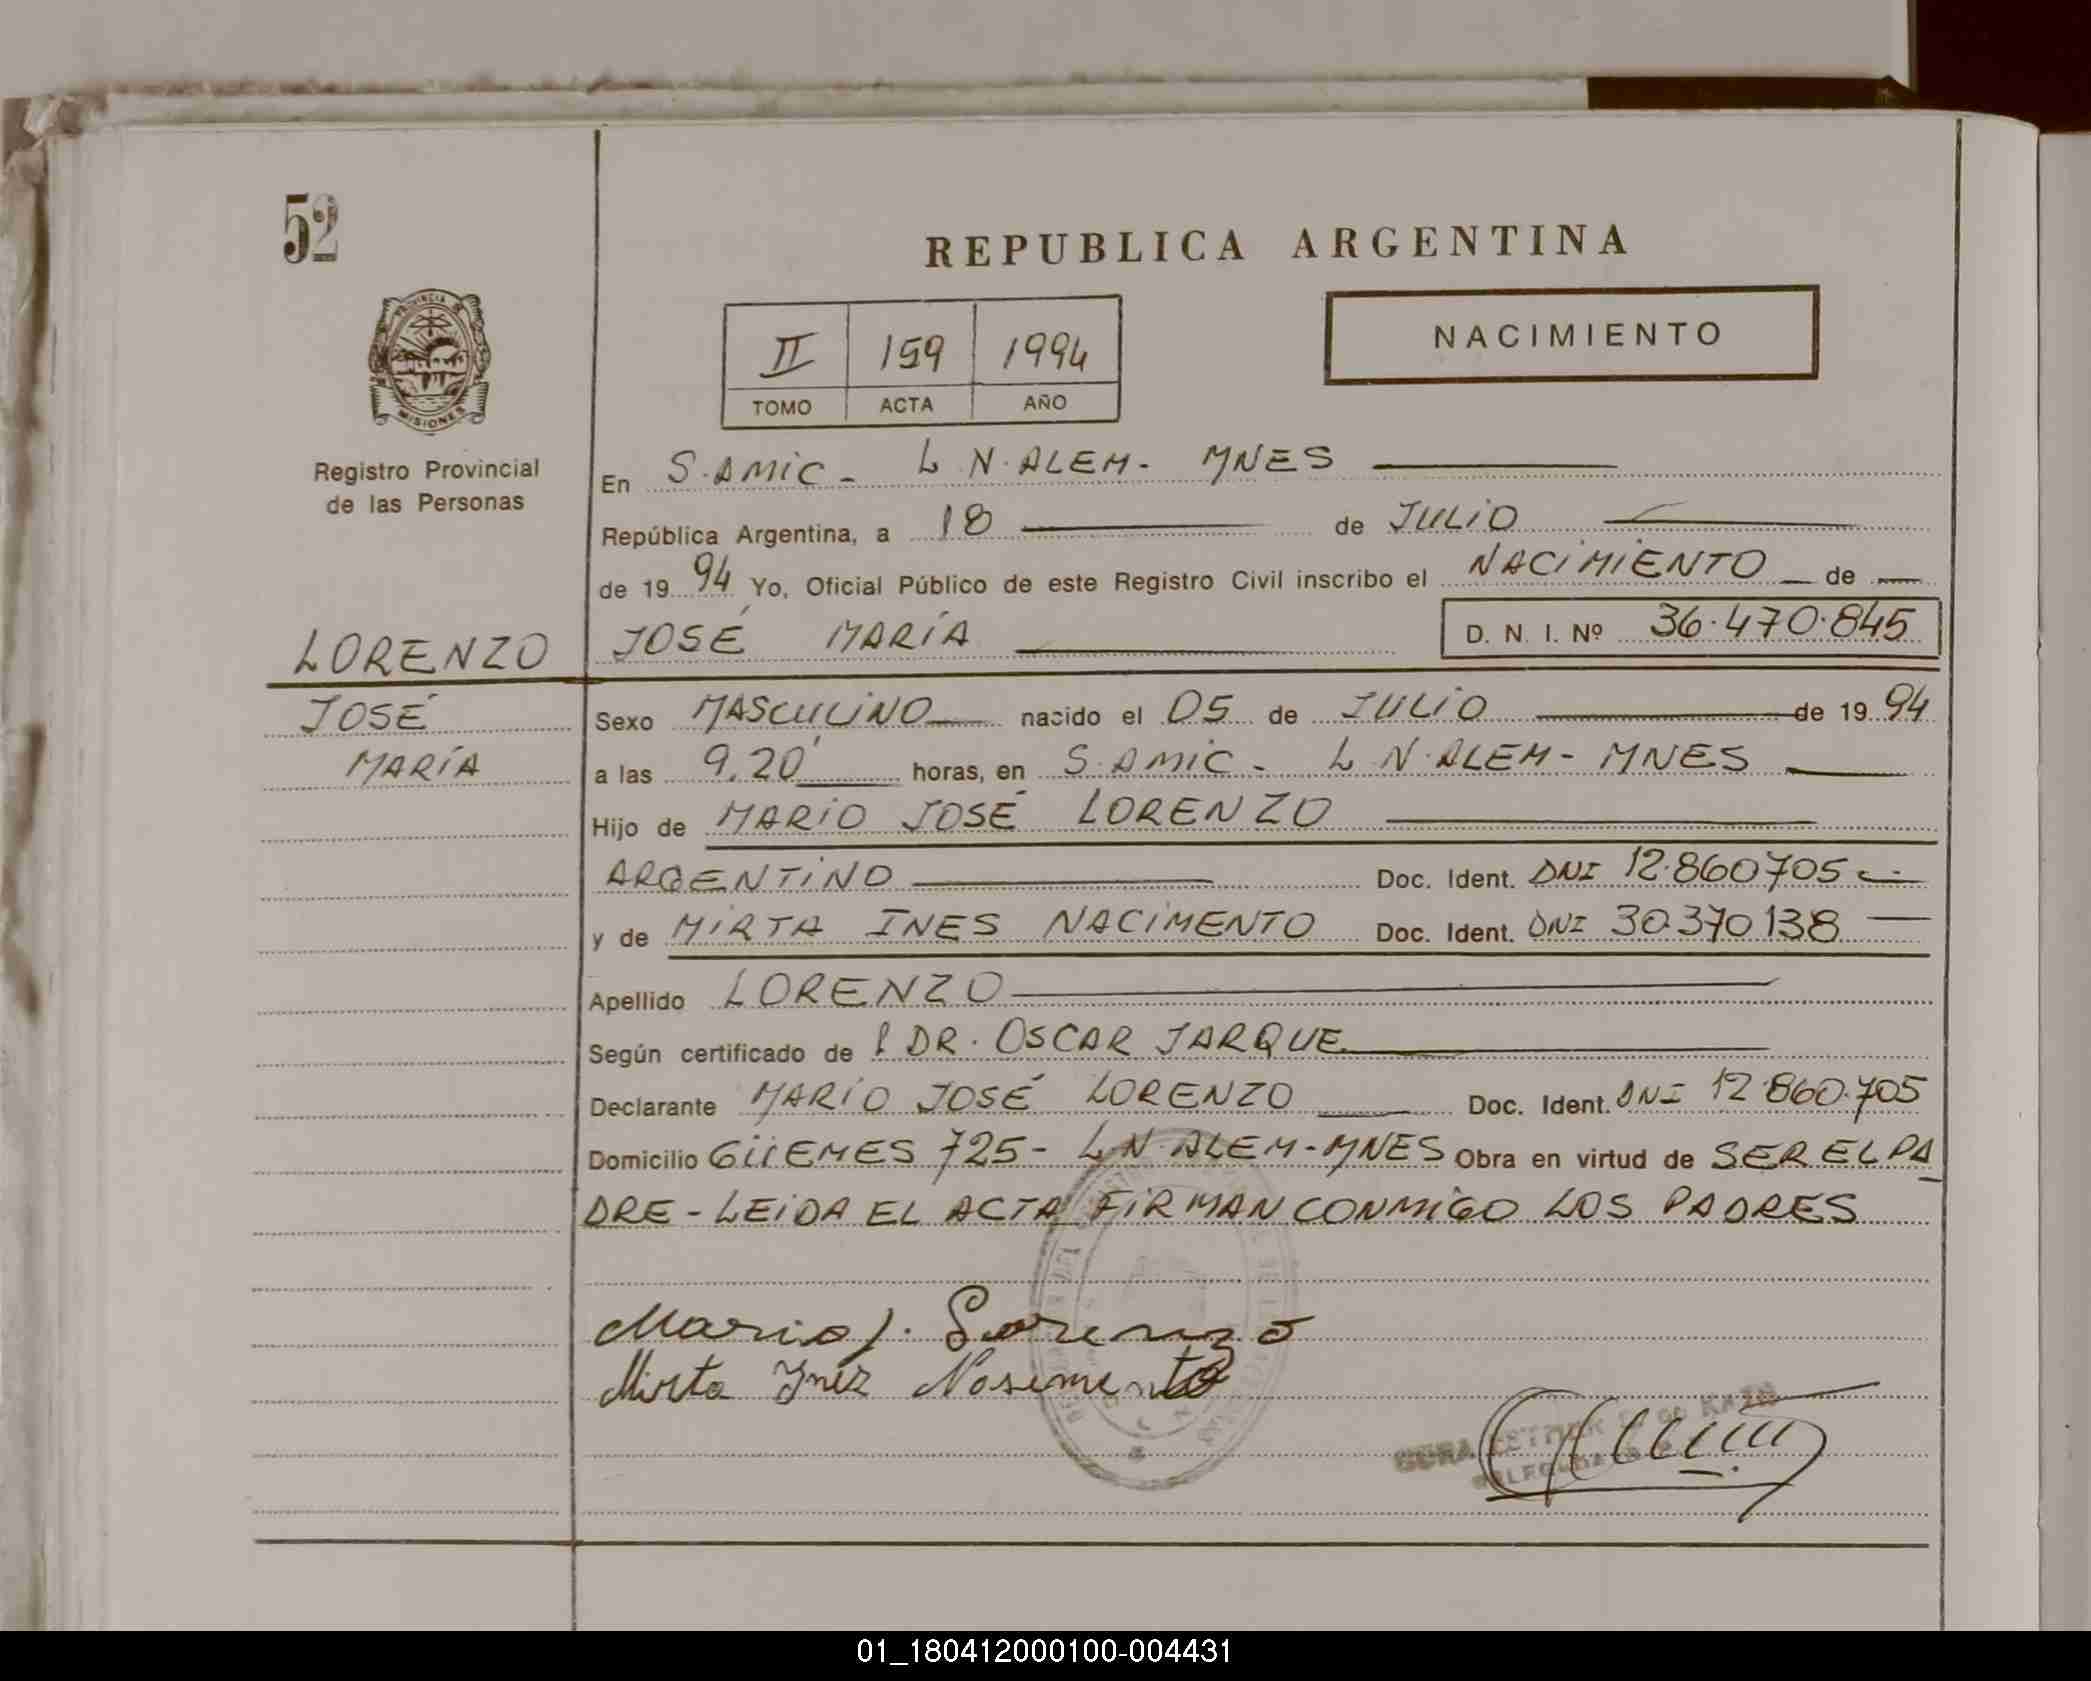 52
REPUBLICA ARGENTINA
II 159 1994
TOMO ACTA AÑO
NACIMIENTO
PROVINCIA DE
MISIONES
Registro Provincial
de las Personas
En S. AMIC - L. N. ALEM - MNES
República Argentina, a 18 de JULIO
de 19 94 Yo, Oficial Público de este Registro Civil inscribo el NACIMIENTO de
LORENZO JOSÉ MARÍA D. N. I. Nº 36.470.845
JOSÉ Sexo MASCULINO nacido el 05 de JULIO de 19 94
MARÍA a las 9.20' horas, en S. AMIC - L N. ALEM - MNES
Hijo de MARIO JOSÉ LORENZO
ARGENTINO Doc. Ident. DNI 12.860705
y de MIRTA INES NACIMENTO Doc. Ident. DNI 30.370138
Apellido LORENZO
Según certificado de DR. OSCAR JARQUE
Declarante MARIO JOSÉ LORENZO Doc. Ident. DNI 12.860.705
Domicilio GÜEMES 725 - L. N. ALEM - MNES Obra en virtud de SER EL PA
DRE - LEIDA EL ACTA FIRMAN CONMIGO LOS PADRES
Mario J. Lorenzo
Mirta Ynez Nosemento
01_180412000100-004431